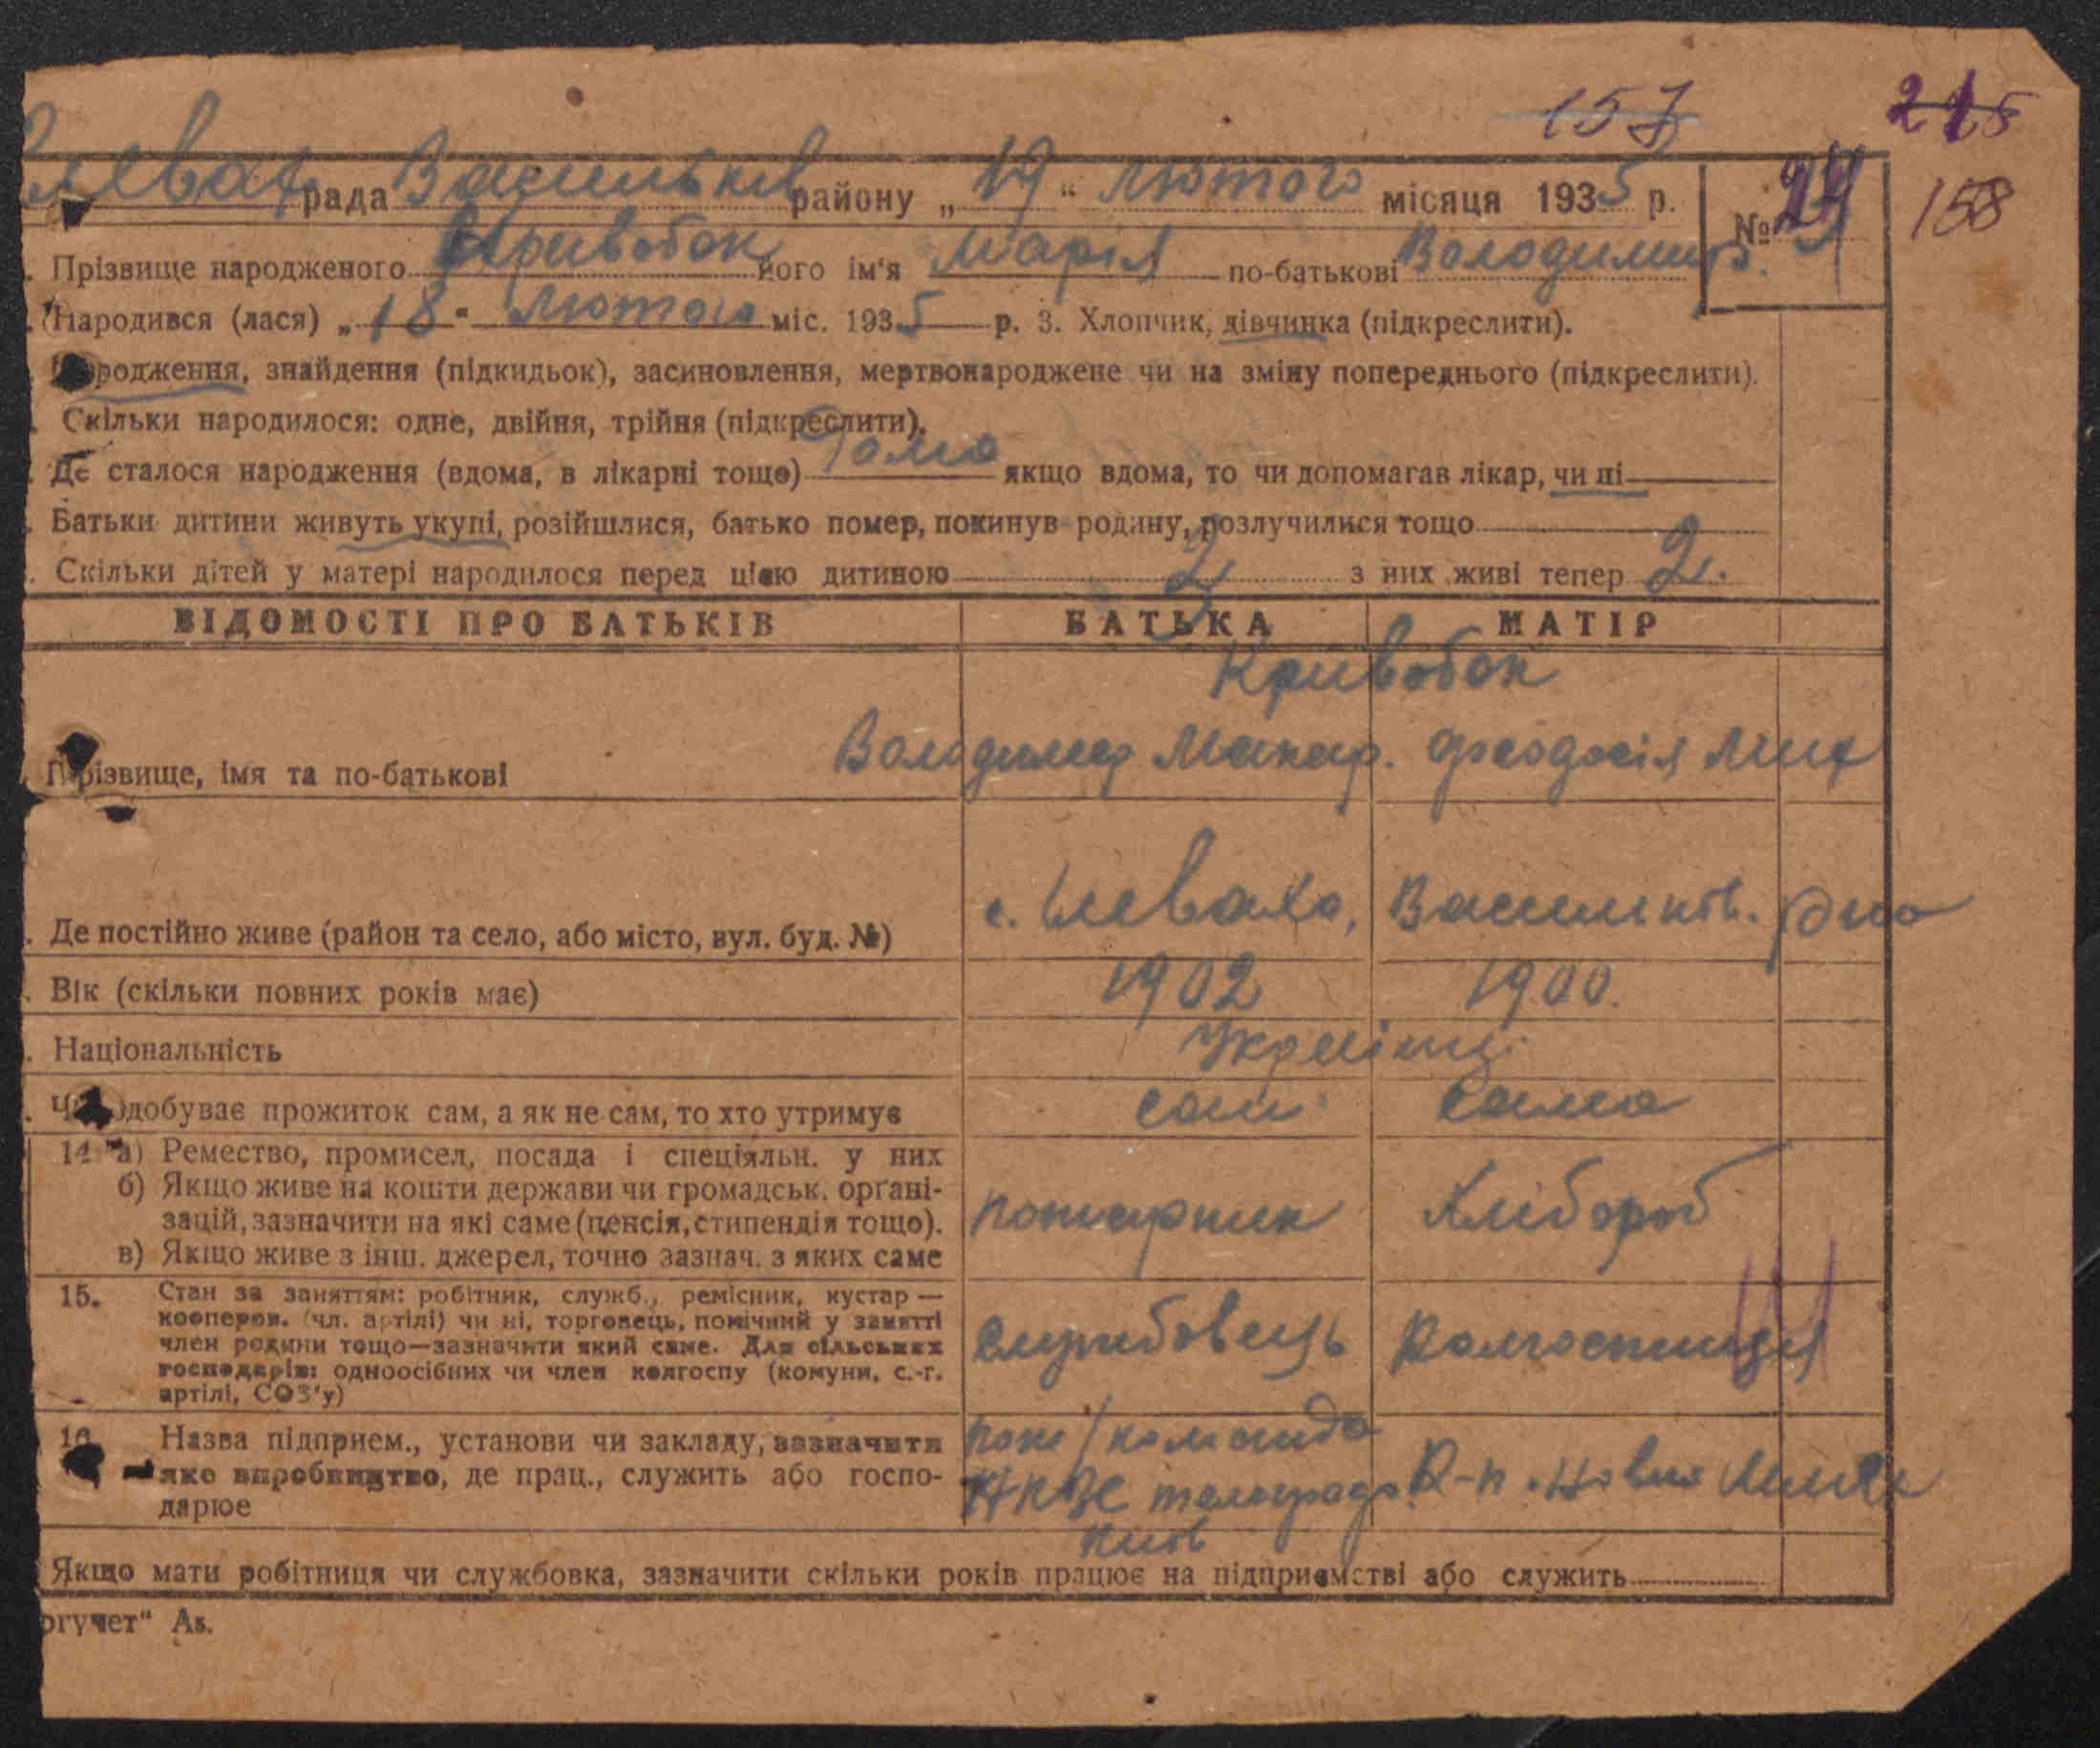 157 215
рада Васильків району „ 19 “ лютого місяця 1935 р. № 24
158
Прізвище народженого Кривобок його ім'я Марія по-батькові Володимир.
Народився (лася) „ 18 “ лютого міс. 1935 р. 3. Хлопчик, дівчинка (підкреслити).
родження, знайдення (підкидьок), засиновлення, мертвонароджене чи на зміну попереднього (підкреслити).
Скільки народилося: одне, двійня, трійня (підкреслити).
Де сталося народження (вдома, в лікарні тощо) дома якщо вдома, то чи допомагав лікар, чи ні
Батьки дитини живуть укупі, розійшлися, батько помер, покинув родину, розлучилися тощо
Скільки дітей у матері народилося перед цією дитиною 2 з них живі тепер 2.
ВІДОМОСТІ ПРО БАТЬКІВ БАТЬКА МАТІР
Кривобок
Прізвище, імя та по-батькові Володимир Макар. Феодосія Мих
Де постійно живе (район та село, або місто, вул. буд. №) с. Глеваха, Васильків. р-на
Вік (скільки повних років має) 1902 1900.
Національність Українці
Чи здобуває прожиток сам, а як не сам, то хто утримує сам сама
14 а) Ремество, промисел, посада і спеціяльн. у них
б) Якщо живе на кошти держави чи громадськ. органі-
зацій, зазначити на які саме (пенсія, стипендія тощо). пожарник Хлібороб
в) Якщо живе з інш. джерел, точно зазнач. з яких саме
15. Стан за заняттям: робітник, служб., ремісник, кустар —
кооперов. (чл. артілі) чи ні, торговець, помічний у занятті
член родини тощо—зазначити який саме. Для сільських службовець Колгоспниця
господарів: одноосібних чи член колгоспу (комуни, с.-г.
артілі, СОЗ'у)
16 Назва підприєм., установи чи закладу, зазначити пож/команда
яке виробництво, де прац., служить або госпо- К-п. Нове
дарює
Київ
Якщо мати робітниця чи службовка, зазначити скільки років працює на підприємстві або служить
оргучет“ Аз.